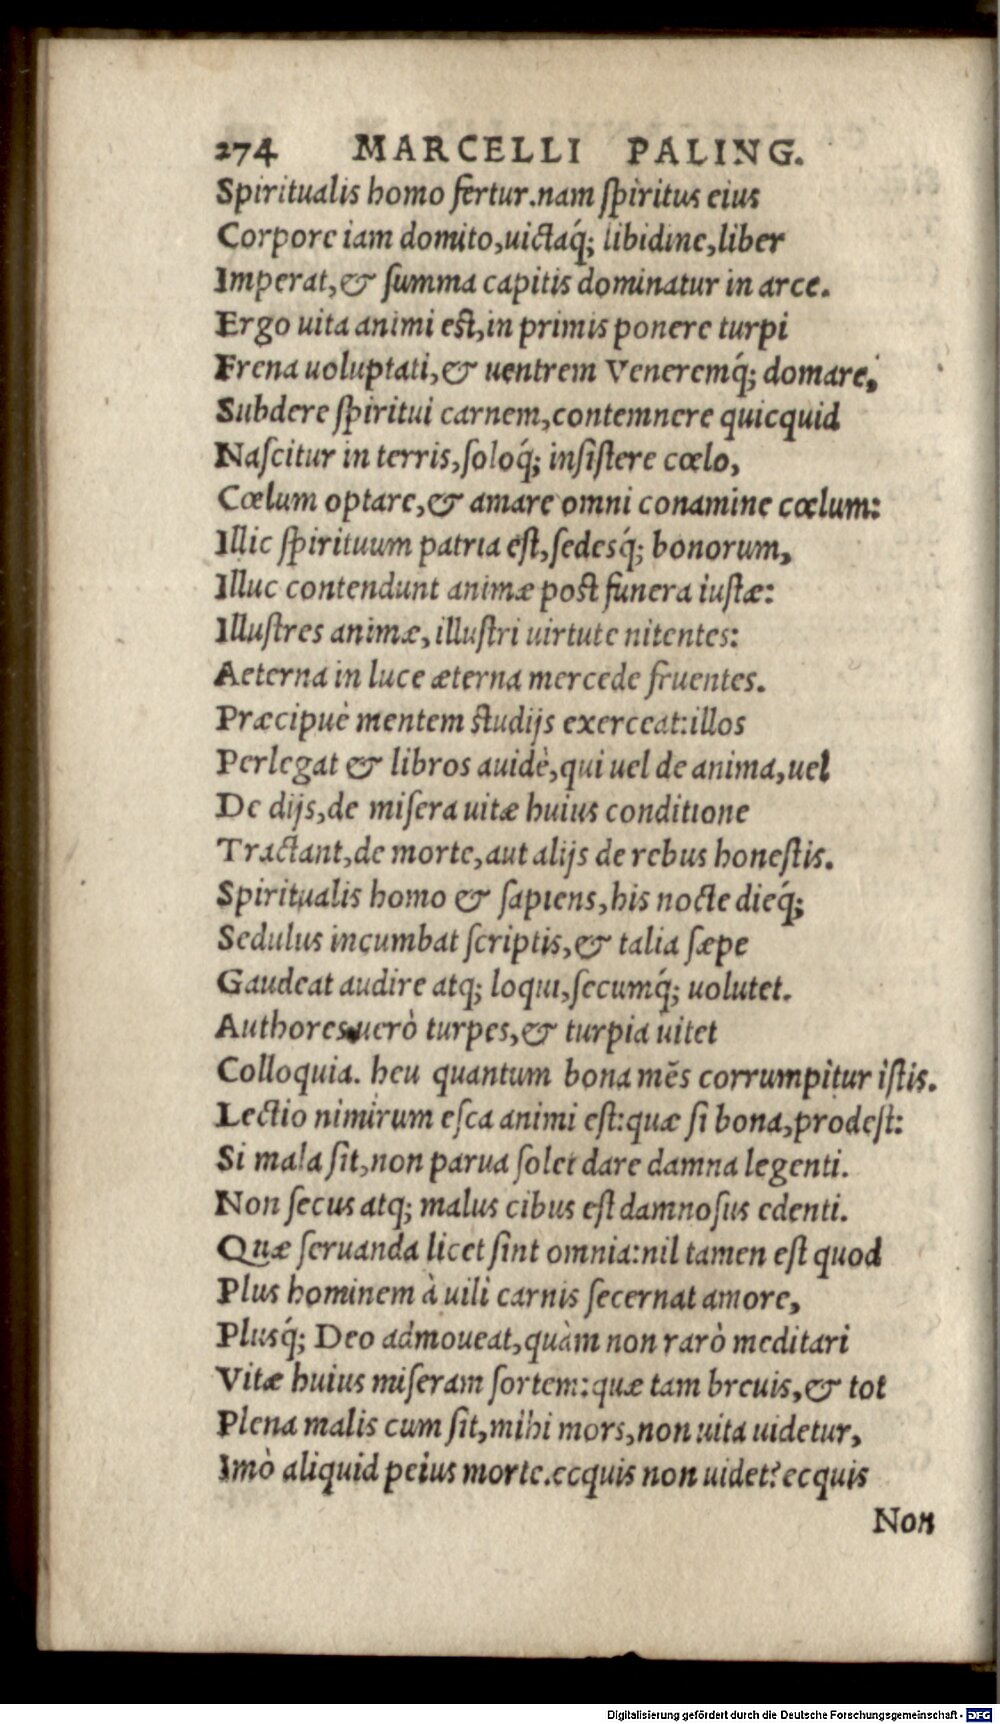 274 MARCELLI PALING.
Spiritualis homo fertur.nam ſpiritus eius
Corpore iam domito,uictaq́; libidine,liber
Imperat,& ſumma capitis dominatur in arce.
Ergo uita animi est,in primis ponere turpi
Frena uoluptati,& uentrem Veneremq́; domare,
Subdere ſpiritui carnem,contemnere quicquid
Naſcitur in terris,ſoloq́; inſiſtere cœlo,
Cœlum optare,& amare omni conamine cœlum:
Illic ſpirituum patria eſt,ſedesq́; bonorum,
Illuc contendunt animæ post funera iuſtæ:
Illuſtres animæ, illuſtri uirtute nitentes:
Aeterna in luce æterna mercede fruentes.
Præcipuè mentem studijs exerceat:illos
Perlegat & libros auidè,qui uel de anima,uel
De dijs,de miſera uitæ huius conditione
Tractant,de morte,aut alijs de rebus honeſtis.
Spiritualis homo & ſapiens,his nocte dieq́;
Sedulus incumbat ſcriptis,& talia ſæpe
Gaudeat audire atq; loqui,ſecumq́; uolutet.
Authores uerò turpes,& turpia uitet
Colloquia. heu quantum bona mẽs corrumpitur iſtis.
Lectio nimirum eſca animi eſt:quæ ſi bona,prodeſt:
Si mala ſit,non parua ſolet dare damna legenti.
Non ſecus atq; malus cibus eſt damnoſus edenti.
Quæ ſeruanda licet ſint omnia:nil tamen eſt quod
Plus hominem à uili carnis ſecernat amore,
Plusq́; Deo admoueat,quàm non rarò meditari
Vitæ huius miſeram ſortem:quæ tam breuis,& tot
Plena malis cum ſit,mihi mors,non uita uidetur,
Imò aliquid peius morte.ecquis non uidet?ecquis
Non
Digitalisierung gefördert durch die Deutsche Forschungsgemeinschaft - DFG